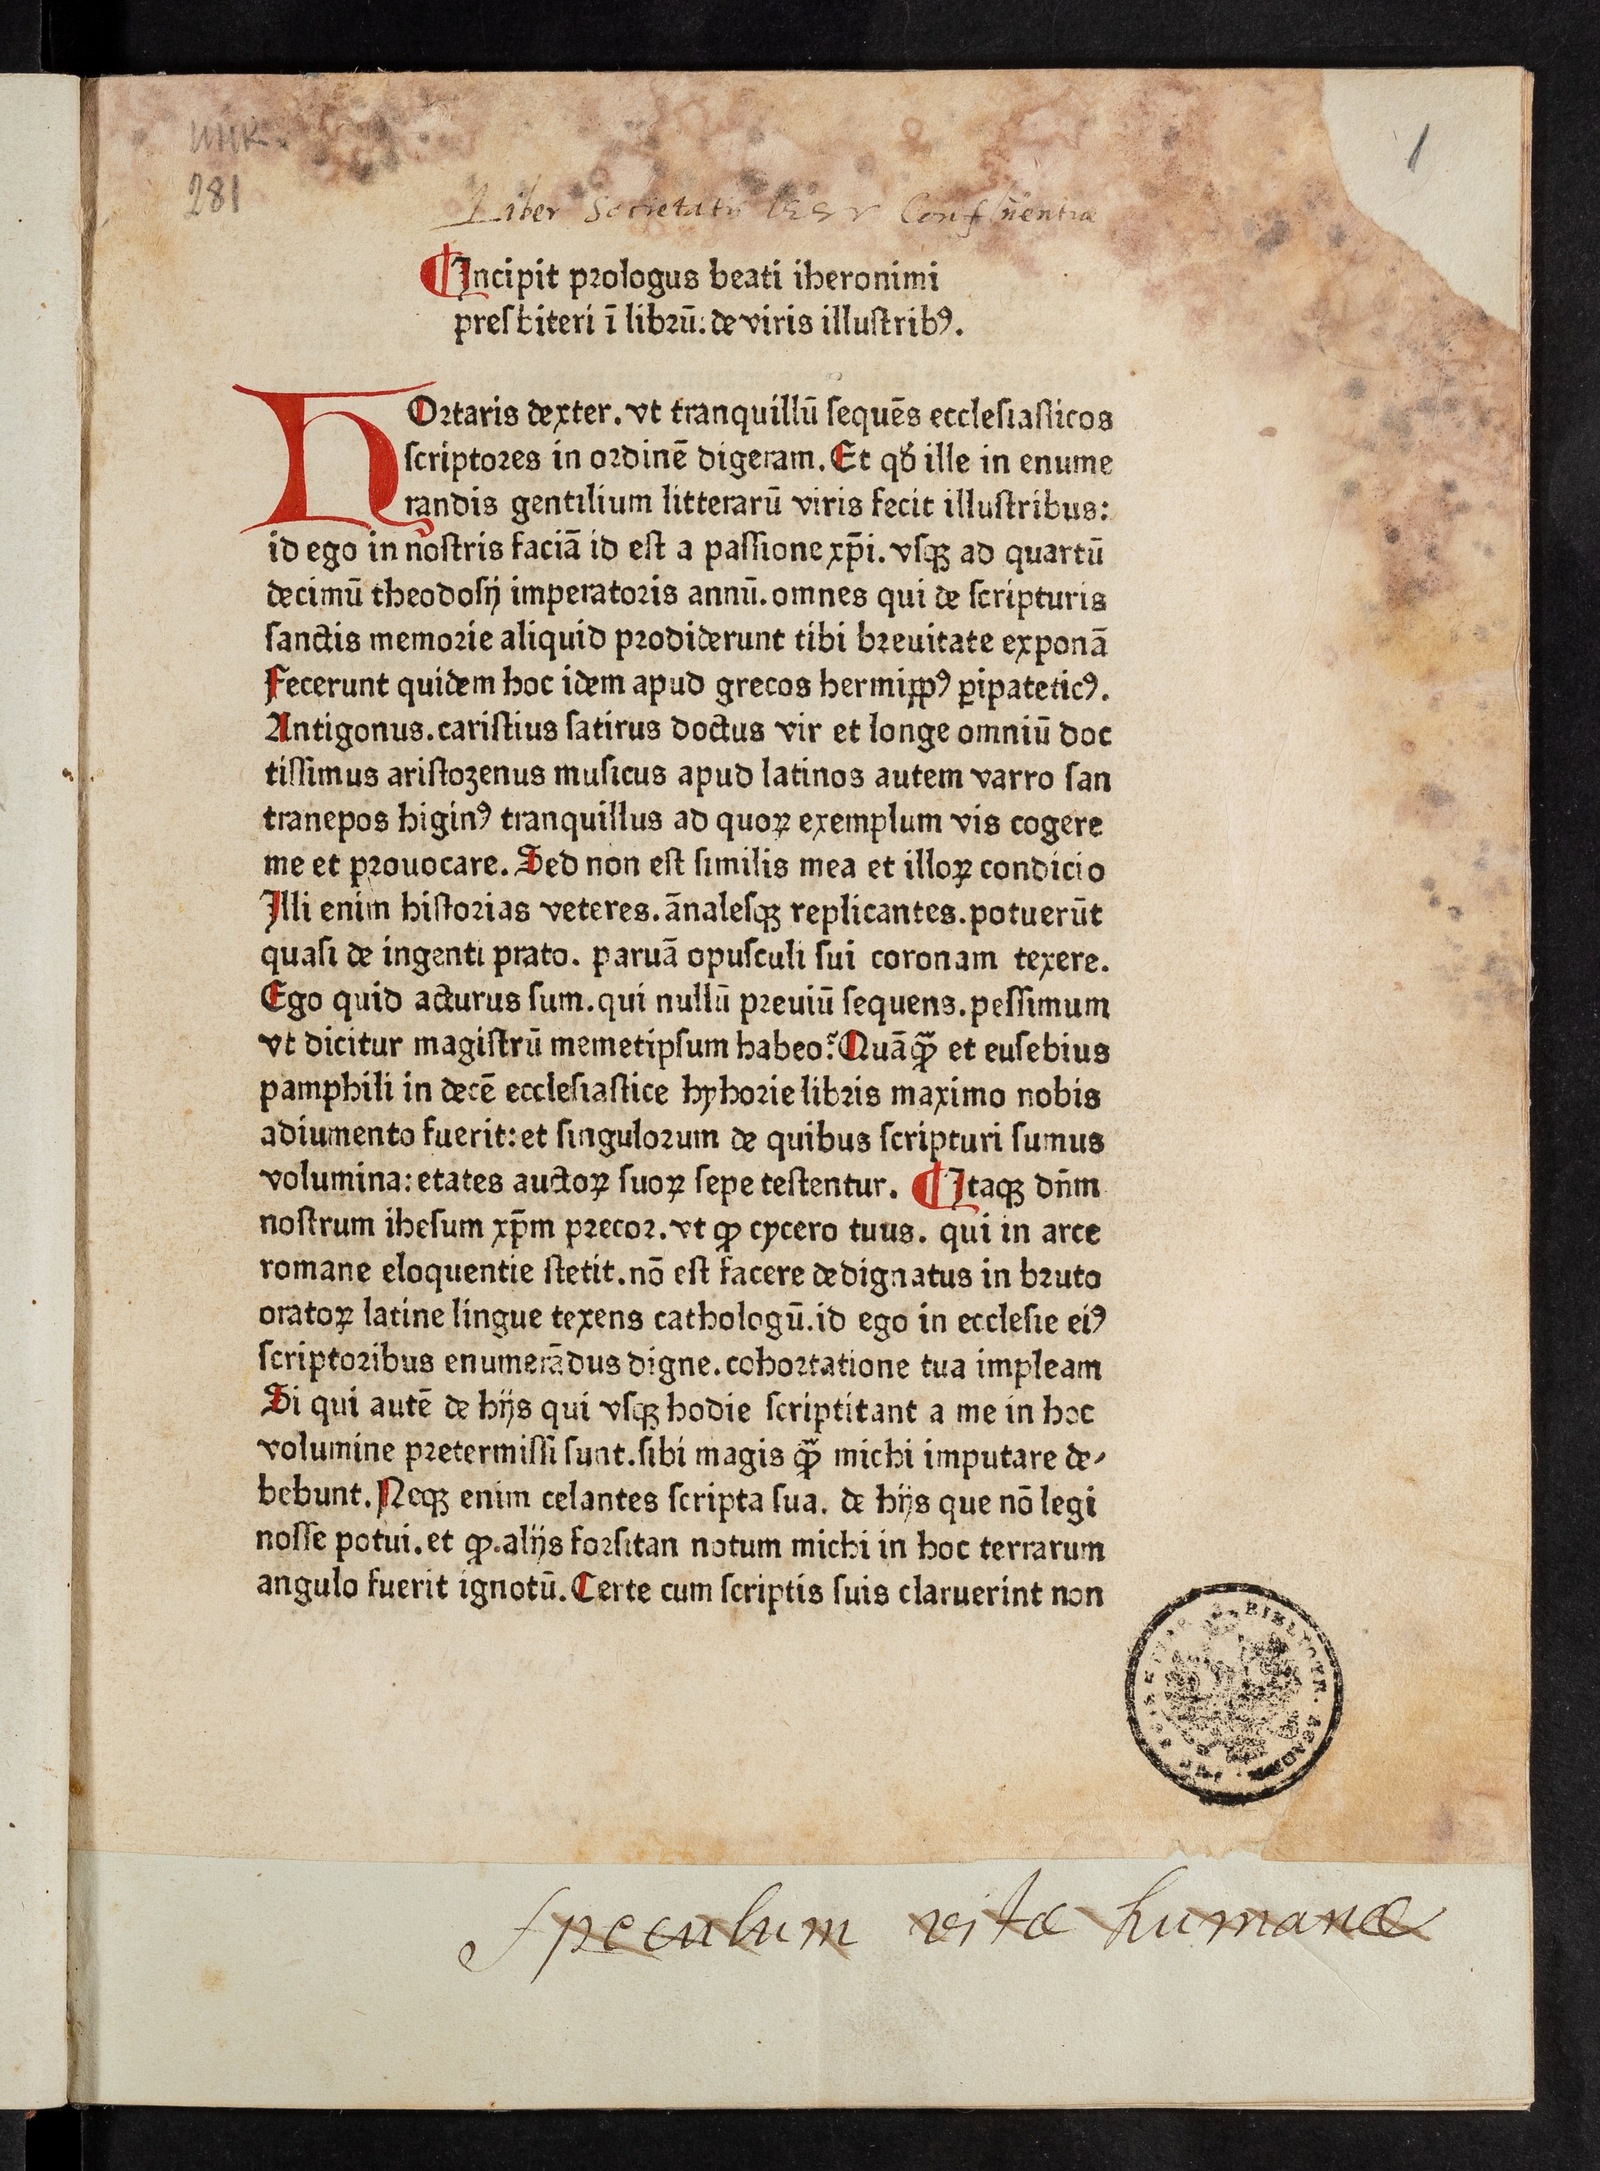 ИНК.
281
1
Liber Societatis Iesv Confluentiæ
Incipit prologus beati iheronimi
presbiteri ī librū: de viris illustribꝰ.
HOrtaris dexter. vt tranquillū sequēs ecclesiasticos
scriptores in ordinē digeram. Et qđ ille in enume
randis gentilium litterarū viris fecit illustribus:
id ego in nostris faciā id est a passione xp̄i. vsqꝫ ad quartū
decimū theodosij imperatoris annū. omnes qui de scripturis
sanctis memorie aliquid prodiderunt tibi breuitate exponā
Fecerunt quidem hoc idem apud grecos hermipꝑꝰ ꝑipateticꝰ.
Antigonus. caristius satirus doctus vir et longe omniū doc
tissimus aristoʒenus musicus apud latinos autem varro san
tranepos higinꝰ tranquillus ad quoꝝ exemplum vis cogere
me et prouocare. Sed non est similis mea et illoꝝ condicio
Illi enim historias veteres. ānalesqꝫ replicantes. potuerūt
quasi de ingenti prato. paruā opusculi sui coronam texere.
Ego quid acturus sum. qui nullū preuiū sequens. pessimum
vt dicitur magistrū memetipsum habeo? Quāꝙ̄ et eusebius
pamphili in decē ecclesiastice hyhorie libris maximo nobis
adiumento fuerit: et singulorum de quibus scripturi sumus
volumina: etates auctoꝝ suoꝝ sepe testentur. Itaqꝫ dn̄m
nostrum ihesum xp̄m precor. vt ꝙ cycero tuus. qui in arce
romane eloquentie stetit. nō est facere dedignatus in bruto
oratoꝝ latine lingue texens cathologū. id ego in ecclesie eiꝰ
scriptoribus enumerādus digne. cohortatione tua impleam
Si qui autē de hijs qui vsqꝫ hodie scriptitant a me in hoc
volumine pretermissi sunt. sibi magis ꝙ̄ michi imputare de⸗
bebunt. Neqꝫ enim celantes scripta sua. de hijs que nō legi
nosse potui. et ꝙ. alijs forsitan notum michi in hoc terrarum
angulo fuerit ignotū. Certe cum scriptis suis claruerint non
Speculum vitæ humanæ